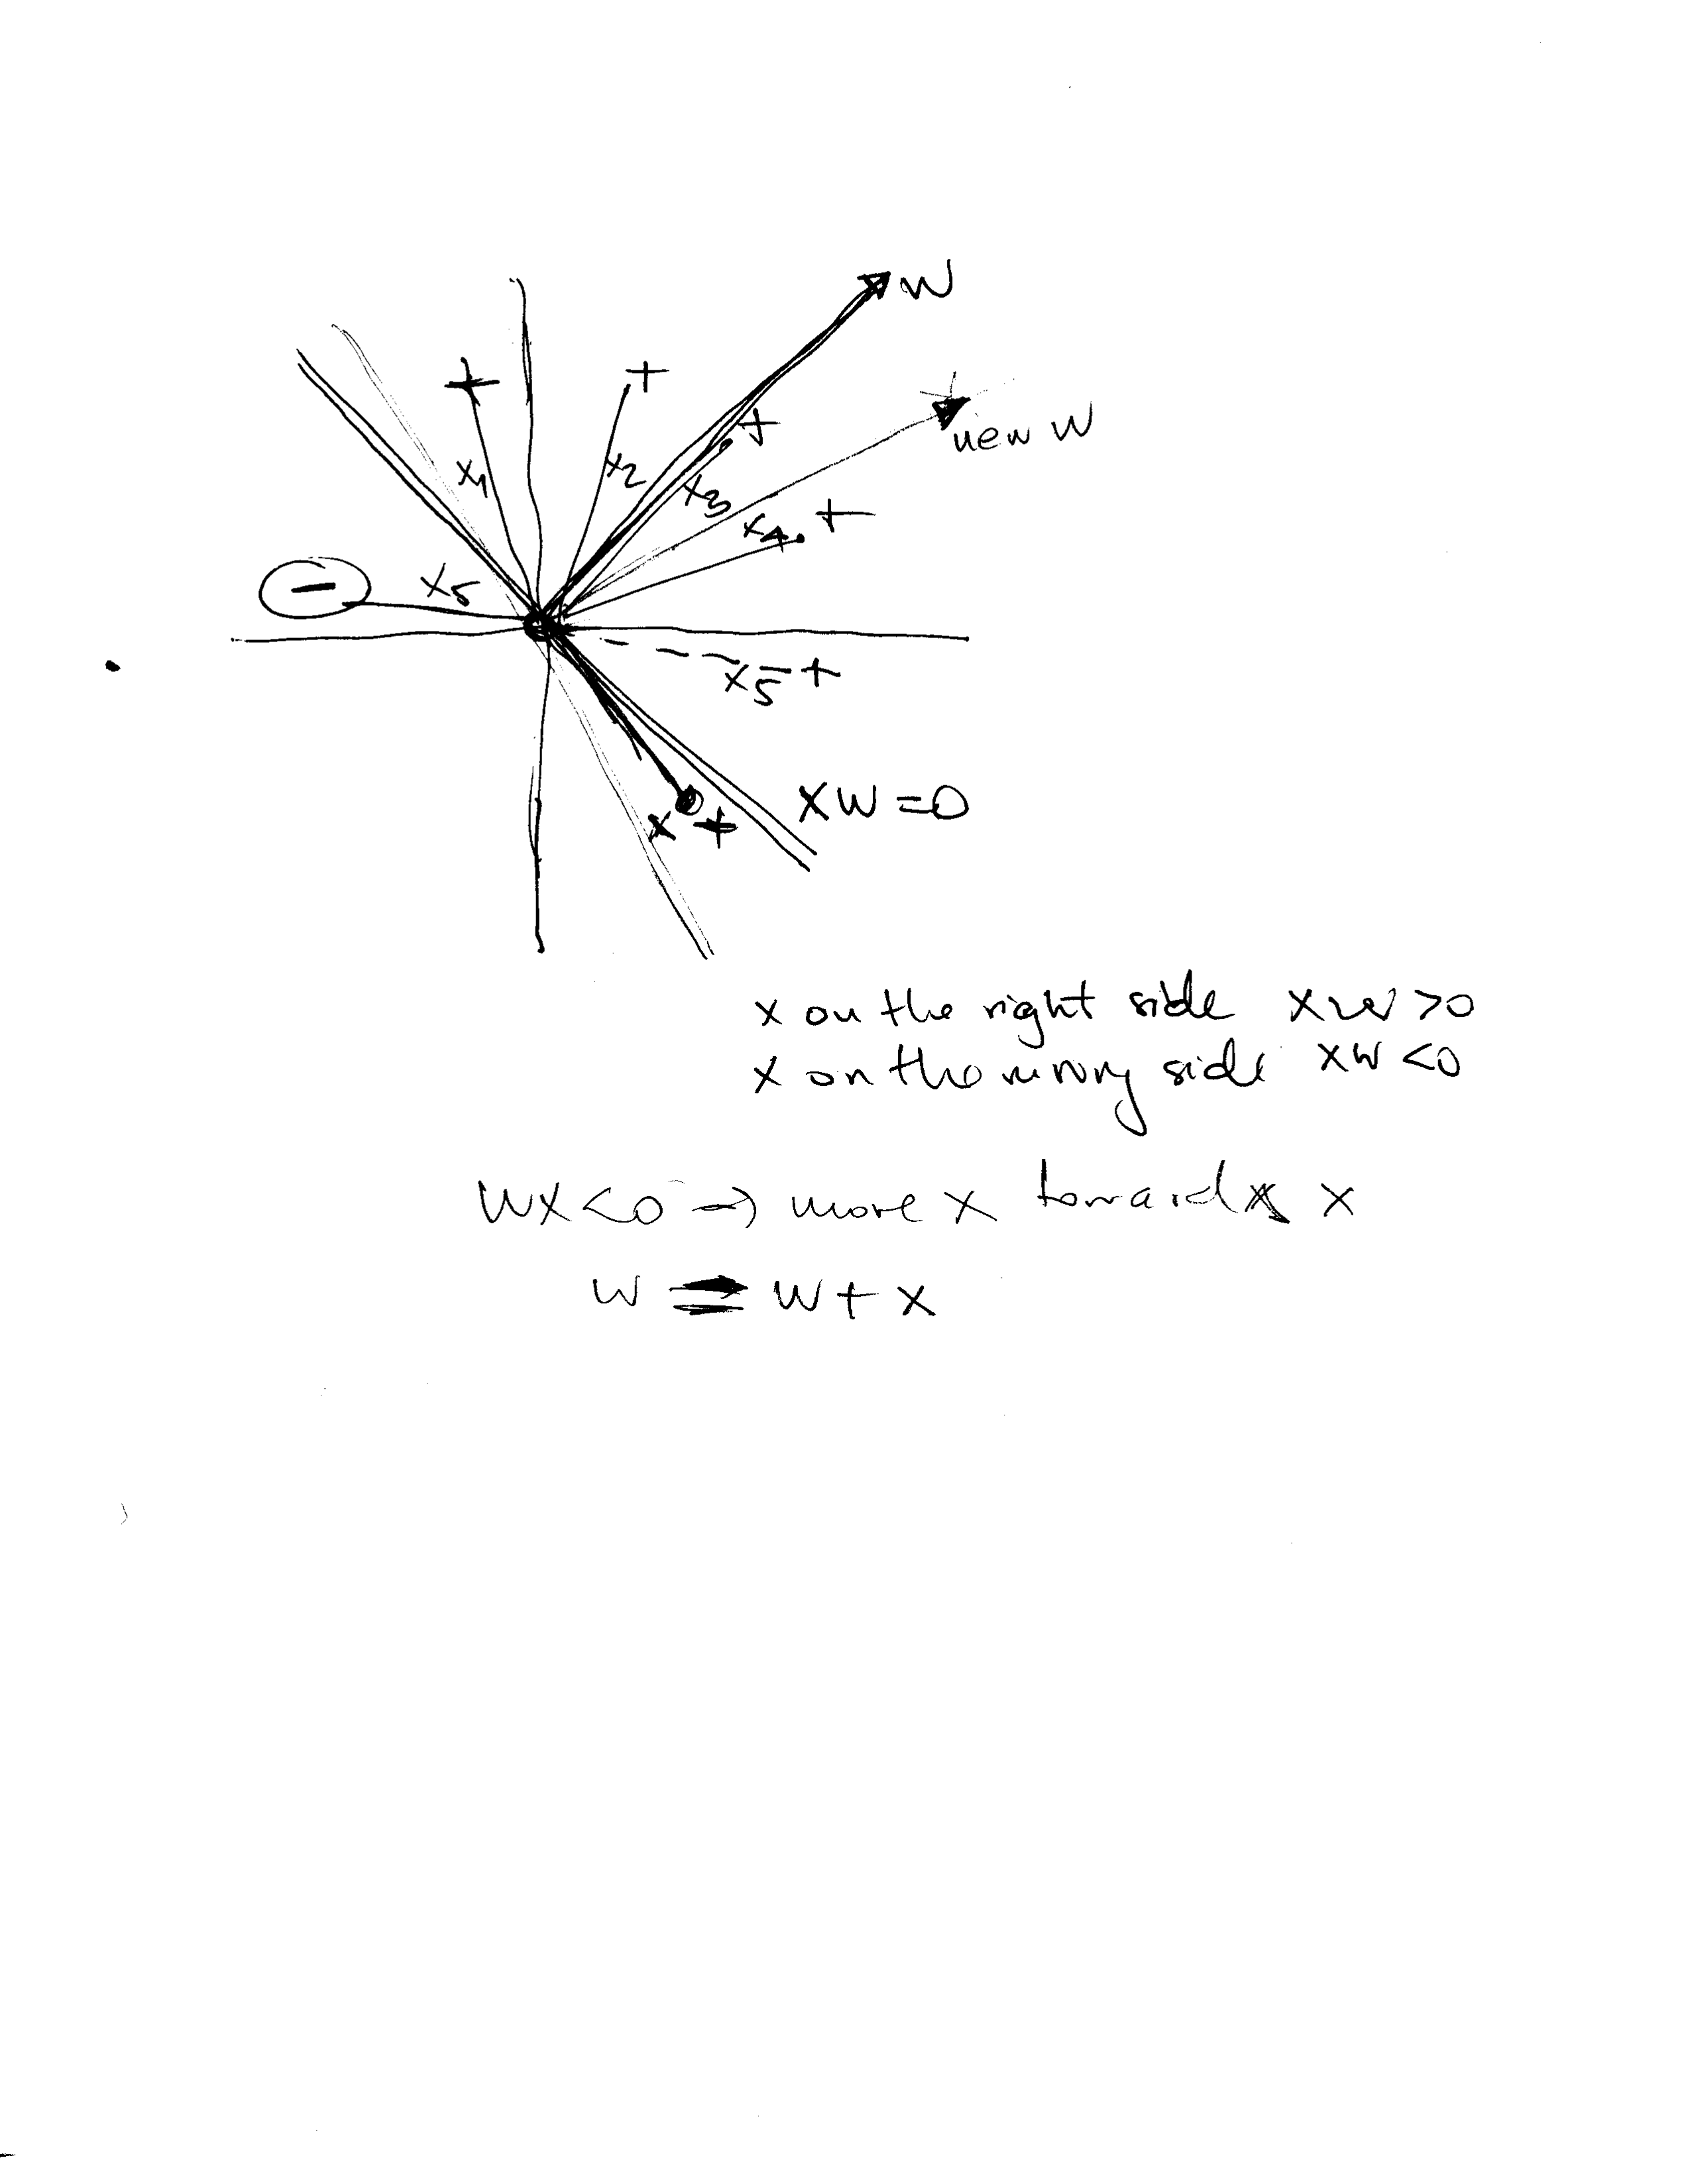 W
+
+
+
new W
x1
x2
x3
x4
+
−
x5
x5
+
x +
XW=0
x on the right side XW>0
x on the wrong side XW<0
WX<0 => move x towards x
W = W + x